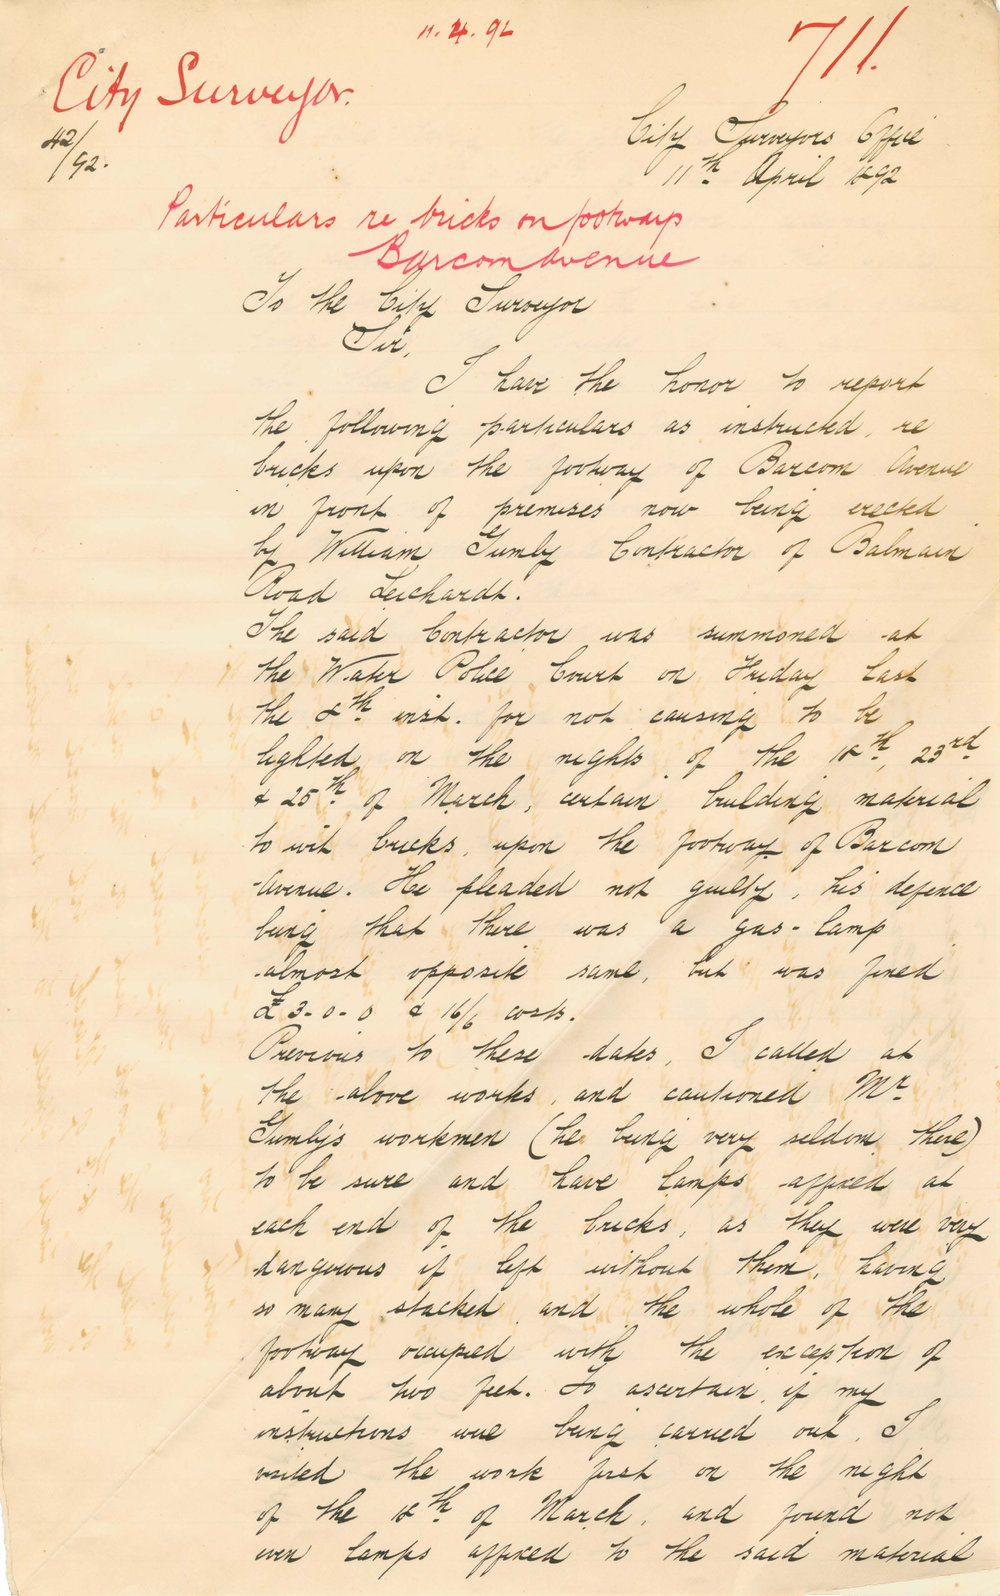 11.4.92
711.
City Surveyor.
42/92.
City Surveyors Office
11th April 1892
Particulars re bricks on footways
Barcom Avenue
To the City Surveyor
Sir,
I have the honor to report
the following particulars as instructed, re
bricks upon the footway of Barcom Avenue
in front of premises now being erected
by William Gumly Contractor of Balmain
Road Leichardt.
The said Contractor was summoned at
the Water Police Court on Friday last
the 8th inst. for not causing to be
lighted on the nights of the 18th, 23rd
& 25th of March, certain building material
to wit bricks, upon the footway of Barcom
Avenue. He pleaded not guilty, his defence
being that there was a gas-lamp
almost opposite same, but was fined
£3-0-0 & 16/6 costs.
Previous to these dates, I called at
the above works, and cautioned Mr
Gumly's workmen (he being very seldom there)
to be sure and have lamps affixed at
each end of the bricks, as they were very
dangerous if left without them, having
so many stacked and the whole of the
footway occupied with the exception of
about two feet. To ascertain if my
instructions were being carried out, I
visited the work first on the night
of the 18th of March, and found not
even lamps affixed to the said material